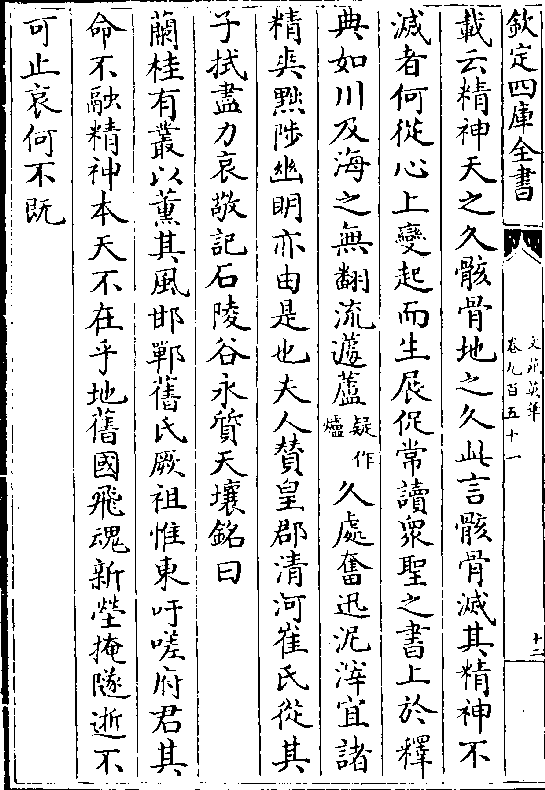 欽定四庫全書
文苑英華
卷九百五十一
十二
載云精神天之久骸骨地之久此言骸骨滅其精神不
滅者何從心上變起而生展促常讀衆聖之書上於釋
典如川及海之無翻流蘧蘆疑作爐久處奮迅泥滓宜諸
精爽黙陟幽明亦由是也夫人賛皇郡清河崔氏從其
子拭盡力哀敬記石陵谷永質天壤銘曰
蘭桂有叢以薰其風邯鄲舊氏厥祖惟東吁嗟府君其
命不融精神本天不在乎地舊國飛魂新塋掩隧逝不
可止哀何不既